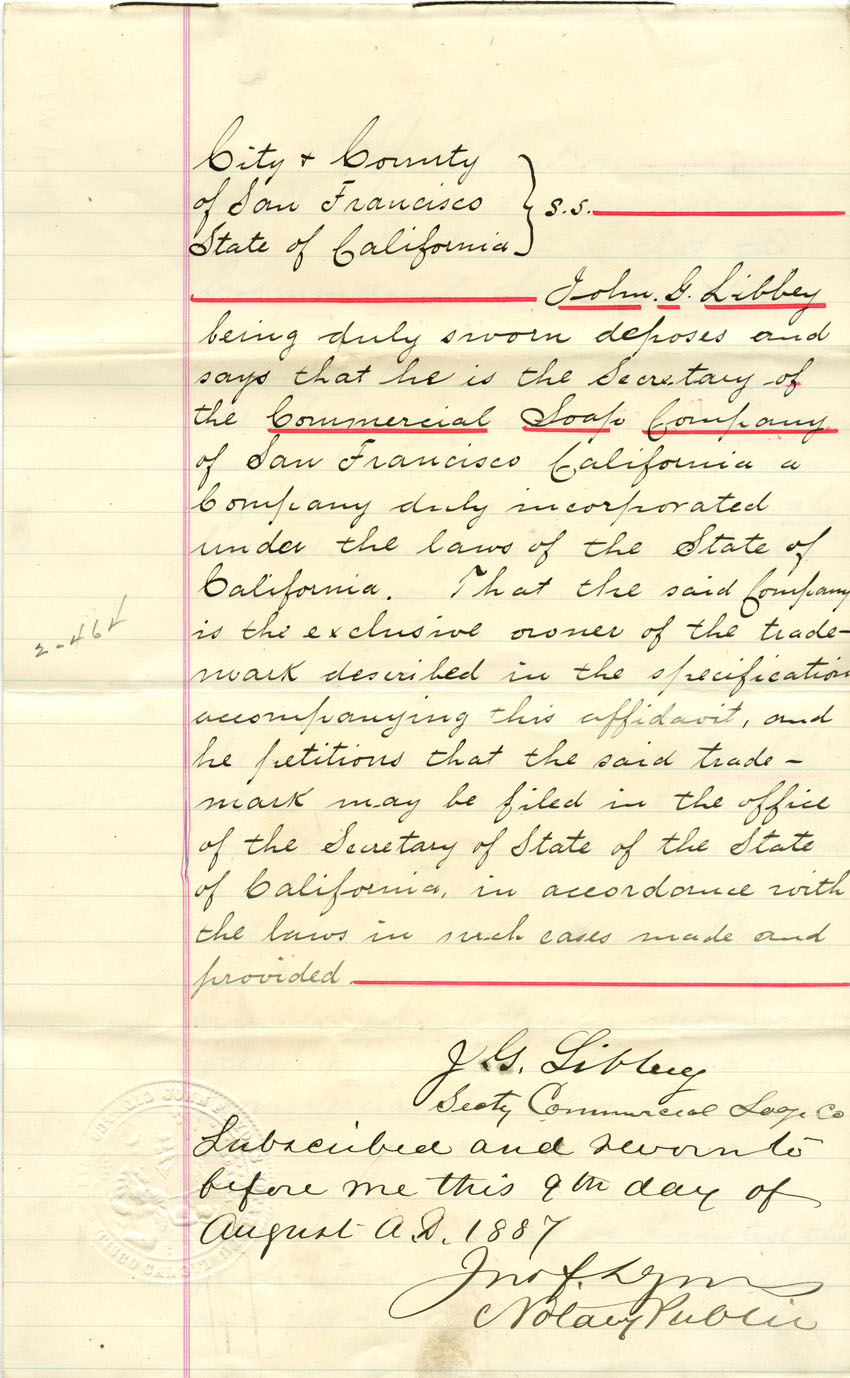 City & County
of San Francisco } s.s.
State of California
John. G. Libbey
being duly sworn deposes and
says that he is the Secretary of
the Commercial Soap Company
of San Francisco California a
Company duly incorporated
under the laws of the State of
California. That the said Company
is the exclusive owner of the trade-
mark described in the specification
accompanying this affidavit, and
he petitions that the said trade-
mark may be filed in the office
of the Secretary of State of the State
of California, in accordance with
the laws in such cases made and
provided.
2-464
J. G. Libbey
Secty Commercial Soap Co
Subscribed and sworn to
before me this 9th day of
August A.D. 1887
Jno. F. Lyons
Notary Public